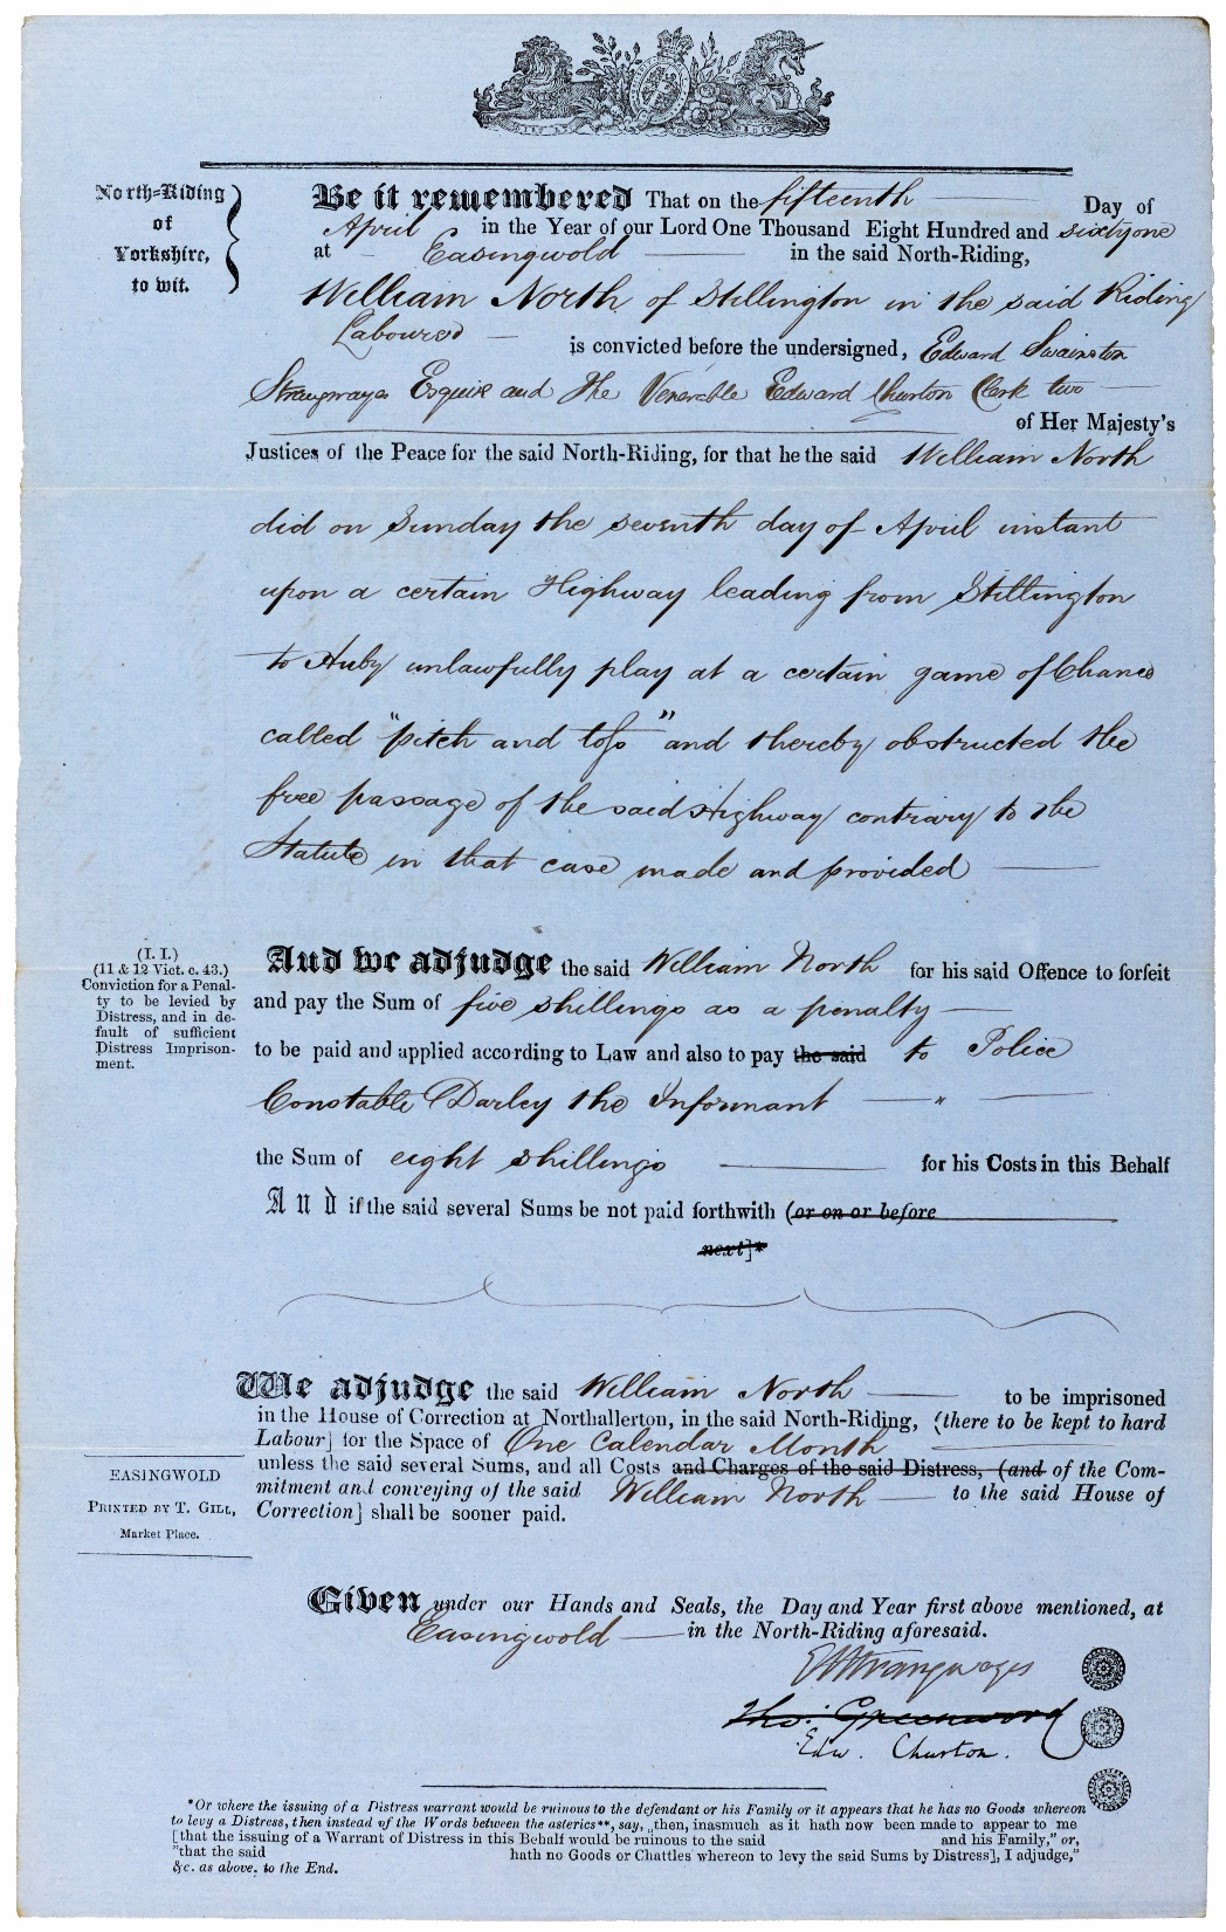 North-Riding
of
Yorkshire,
to wit.
Be it remembered That on the fifteenth Day of
April in the Year of our Lord One Thousand Eight Hundred and sixty one
at Easingwold in the said North-Riding,
William North of Stillington in the said Riding
Labourer is convicted before the undersigned, Edward Swainston
Strangwayes Esquire and The Venerable Edward Churton Clerk two
of Her Majesty's
Justices of the Peace for the said North-Riding, for that he the said William North
did on Sunday the seventh day of April instant
upon a certain Highway leading from Stillington
to Huby unlawfully play at a certain game of Chance
called "pitch and toss" and thereby obstructed the
free passage of the said Highway contrary to the
Statute in that case made and provided
(I. I.)
(11 & 12 Vict. c. 43.)
Conviction for a Penal-
ty to be levied by
Distress, and in de-
fault of sufficient
Distress Imprison-
ment.
And we adjudge the said William North for his said Offence to forfeit
and pay the Sum of five shillings as a penalty
to be paid and applied according to Law and also to pay the said to Police
Constable Darley the Informant "
the Sum of eight shillings for his Costs in this Behalf
And if the said several Sums be not paid forthwith (or on or before
next]*
We adjudge the said William North to be imprisoned
in the House of Correction at Northallerton, in the said North-Riding, (there to be kept to hard
Labour] for the Space of One Calendar Month
unless the said several Sums, and all Costs and Charges of the said Distress, (and of the Com-
mitment and conveying of the said William North to the said House of
Correction] shall be sooner paid.
EASINGWOLD
PRINTED BY T. GILL,
Market Place.
Given under our Hands and Seals, the Day and Year first above mentioned, at
Easingwold in the North-Riding aforesaid.
ESStrangwayes
Tho: Greenwood
Edw. Churton.
*Or where the issuing of a Distress warrant would be ruinous to the defendant or his Family or it appears that he has no Goods whereon
to levy a Distress, then instead of the Words between the asterics**, say, „then, inasmuch as it hath now been made to appear to me
[that the issuing of a Warrant of Distress in this Behalf would be ruinous to the said and his Family," or,
"that the said hath no Goods or Chattles whereon to levy the said Sums by Distress], I adjudge,"
&c. as above, to the End.